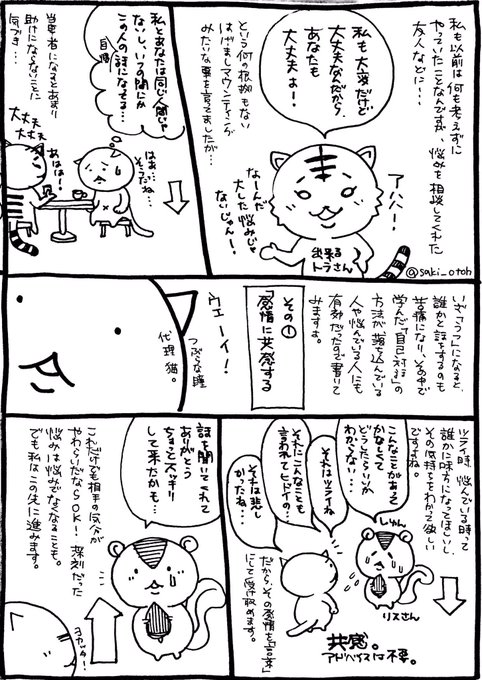 私も以前は何も考えずに
やっていたことなんですが、
悩みを相談してくれた
友人などに…
私も大変だけど
大丈夫なんだから
あなたも
大丈夫よ！
という何の根拠もない
はげましマウンティング
みたいな事を言ってましたが…
アハハー！
なーんだ
大した悩みじゃ
ないじゃん！
出来る
トラさん
@saki_otoh
私とあなたは同じ人間じゃ
ないし、いつの間にか
この人の自慢話になってる…
はぁ…
そうだね…
大丈夫
大丈夫
あはは！
当事者になるとあまり
助けにならないことに
気づき…
いざ「うつ」になると、
誰かと話をするのも
苦痛になり、その中で
学んだ「自己対話」の
方法が、落ち込んでいる
人や悩んでいる人にも
有効だったので書いて
みますよ。
その①
「感情に共感する」
ウエーイ！
つぶらな瞳
代理猫。
ツライ時、悩んでいる時って
誰かに味方になってほしいし、
その気持ちをわかって欲しい
ですよね。
しゅん
こんなことがあって
かなしくて
どうしたらいいか
わからない…
それはツライね
それにこんなことも
言われてヒドイの…
それは悲し
かったね…
リスさん
だから、その感情を「言葉」
にして受け止めます。
共感。
アドバイスは不要。
話を聞いてくれて
ありがとう
ちょっとスッキリ
して来たかも…
これだけでも相手の気分が
やわらいだならOK！深刻だった
悩みは悩みでなくなることも。
でも私はこの先に進みます。
ヨカッター！